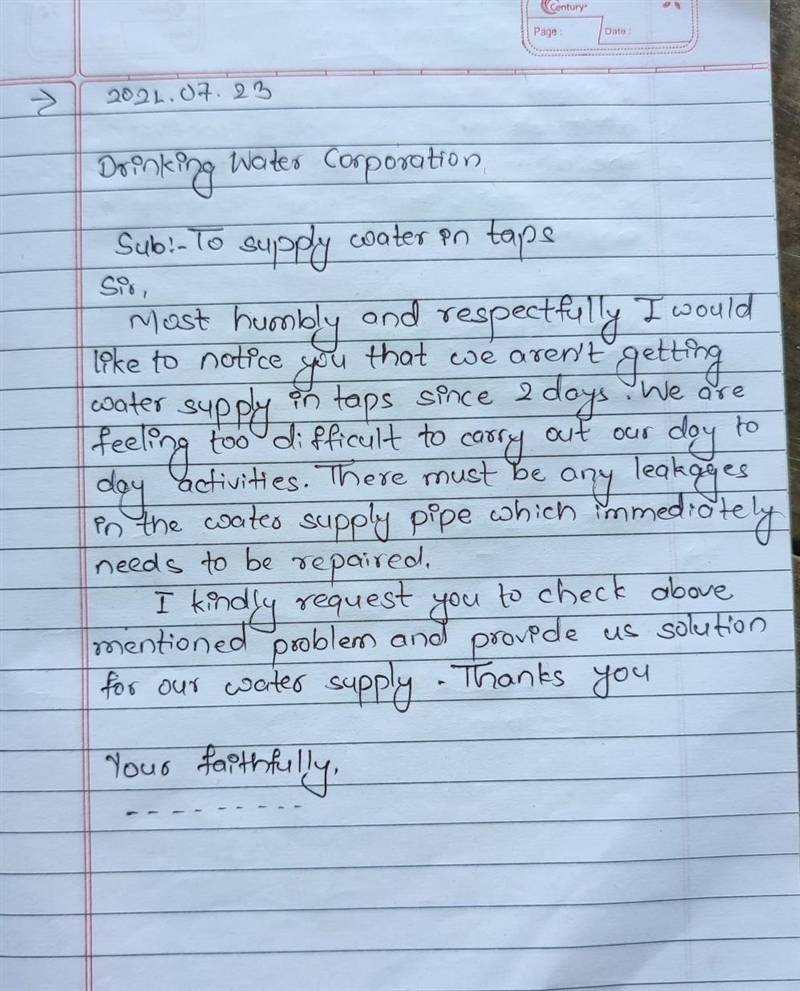 Century
Page : Date :
→ 2021.07.23
Drinking Water Corporation
Sub:- To supply water in taps
Sir,
Most humbly and respectfully I would
like to notice you that we aren't getting
water supply in taps since 2 days. We are
feeling too difficult to carry out our day to
day activities. There must be any leakages
in the water supply pipe which immediately
needs to be repaired.
I kindly request you to check above
mentioned problem and provide us solution
for our water supply. Thanks you
Your faithfully,
----------